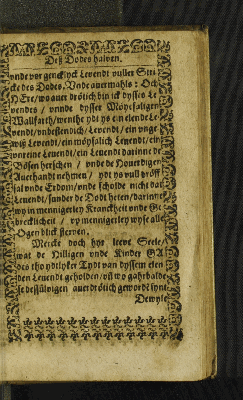 Deß Dodes halven.
unde vorgencklyck Levendt vuller Stri-
cke des Dodes. Unde avermahls: Och
HEre, wo aver drötich bin ick dysses Le-
vendes / unnde dysser Möyesaligen
Wallfarth / wenthe ydt ys ein elende Le-
vendt / unbestendich / Levendt / ein unge-
wiß Levendt / ein möysalich Levendt / ein
unreine Levendt / ein Levendt darinne de
Bösen herschen / unde de Hoverdigen
Averhandt nehmen / ydt ys vull
unde Erdom / unde scholde nicht dat
Levendt / sunder de Dodt heten / darinne
wy in mennigerley Kranckheit unde Ge-
brecklicheit / up mennigerley wyse alle
Ogenblick sterven.
Mercke doch hyr leeve Seele /
wat de Hilligen unde Kinder GA-
des tho ydtlyker Tydt van dyssem elen-
den Levendt geholden / uñ wo
se dessülvigen averdrötich gewordẽ synt
Dewyle